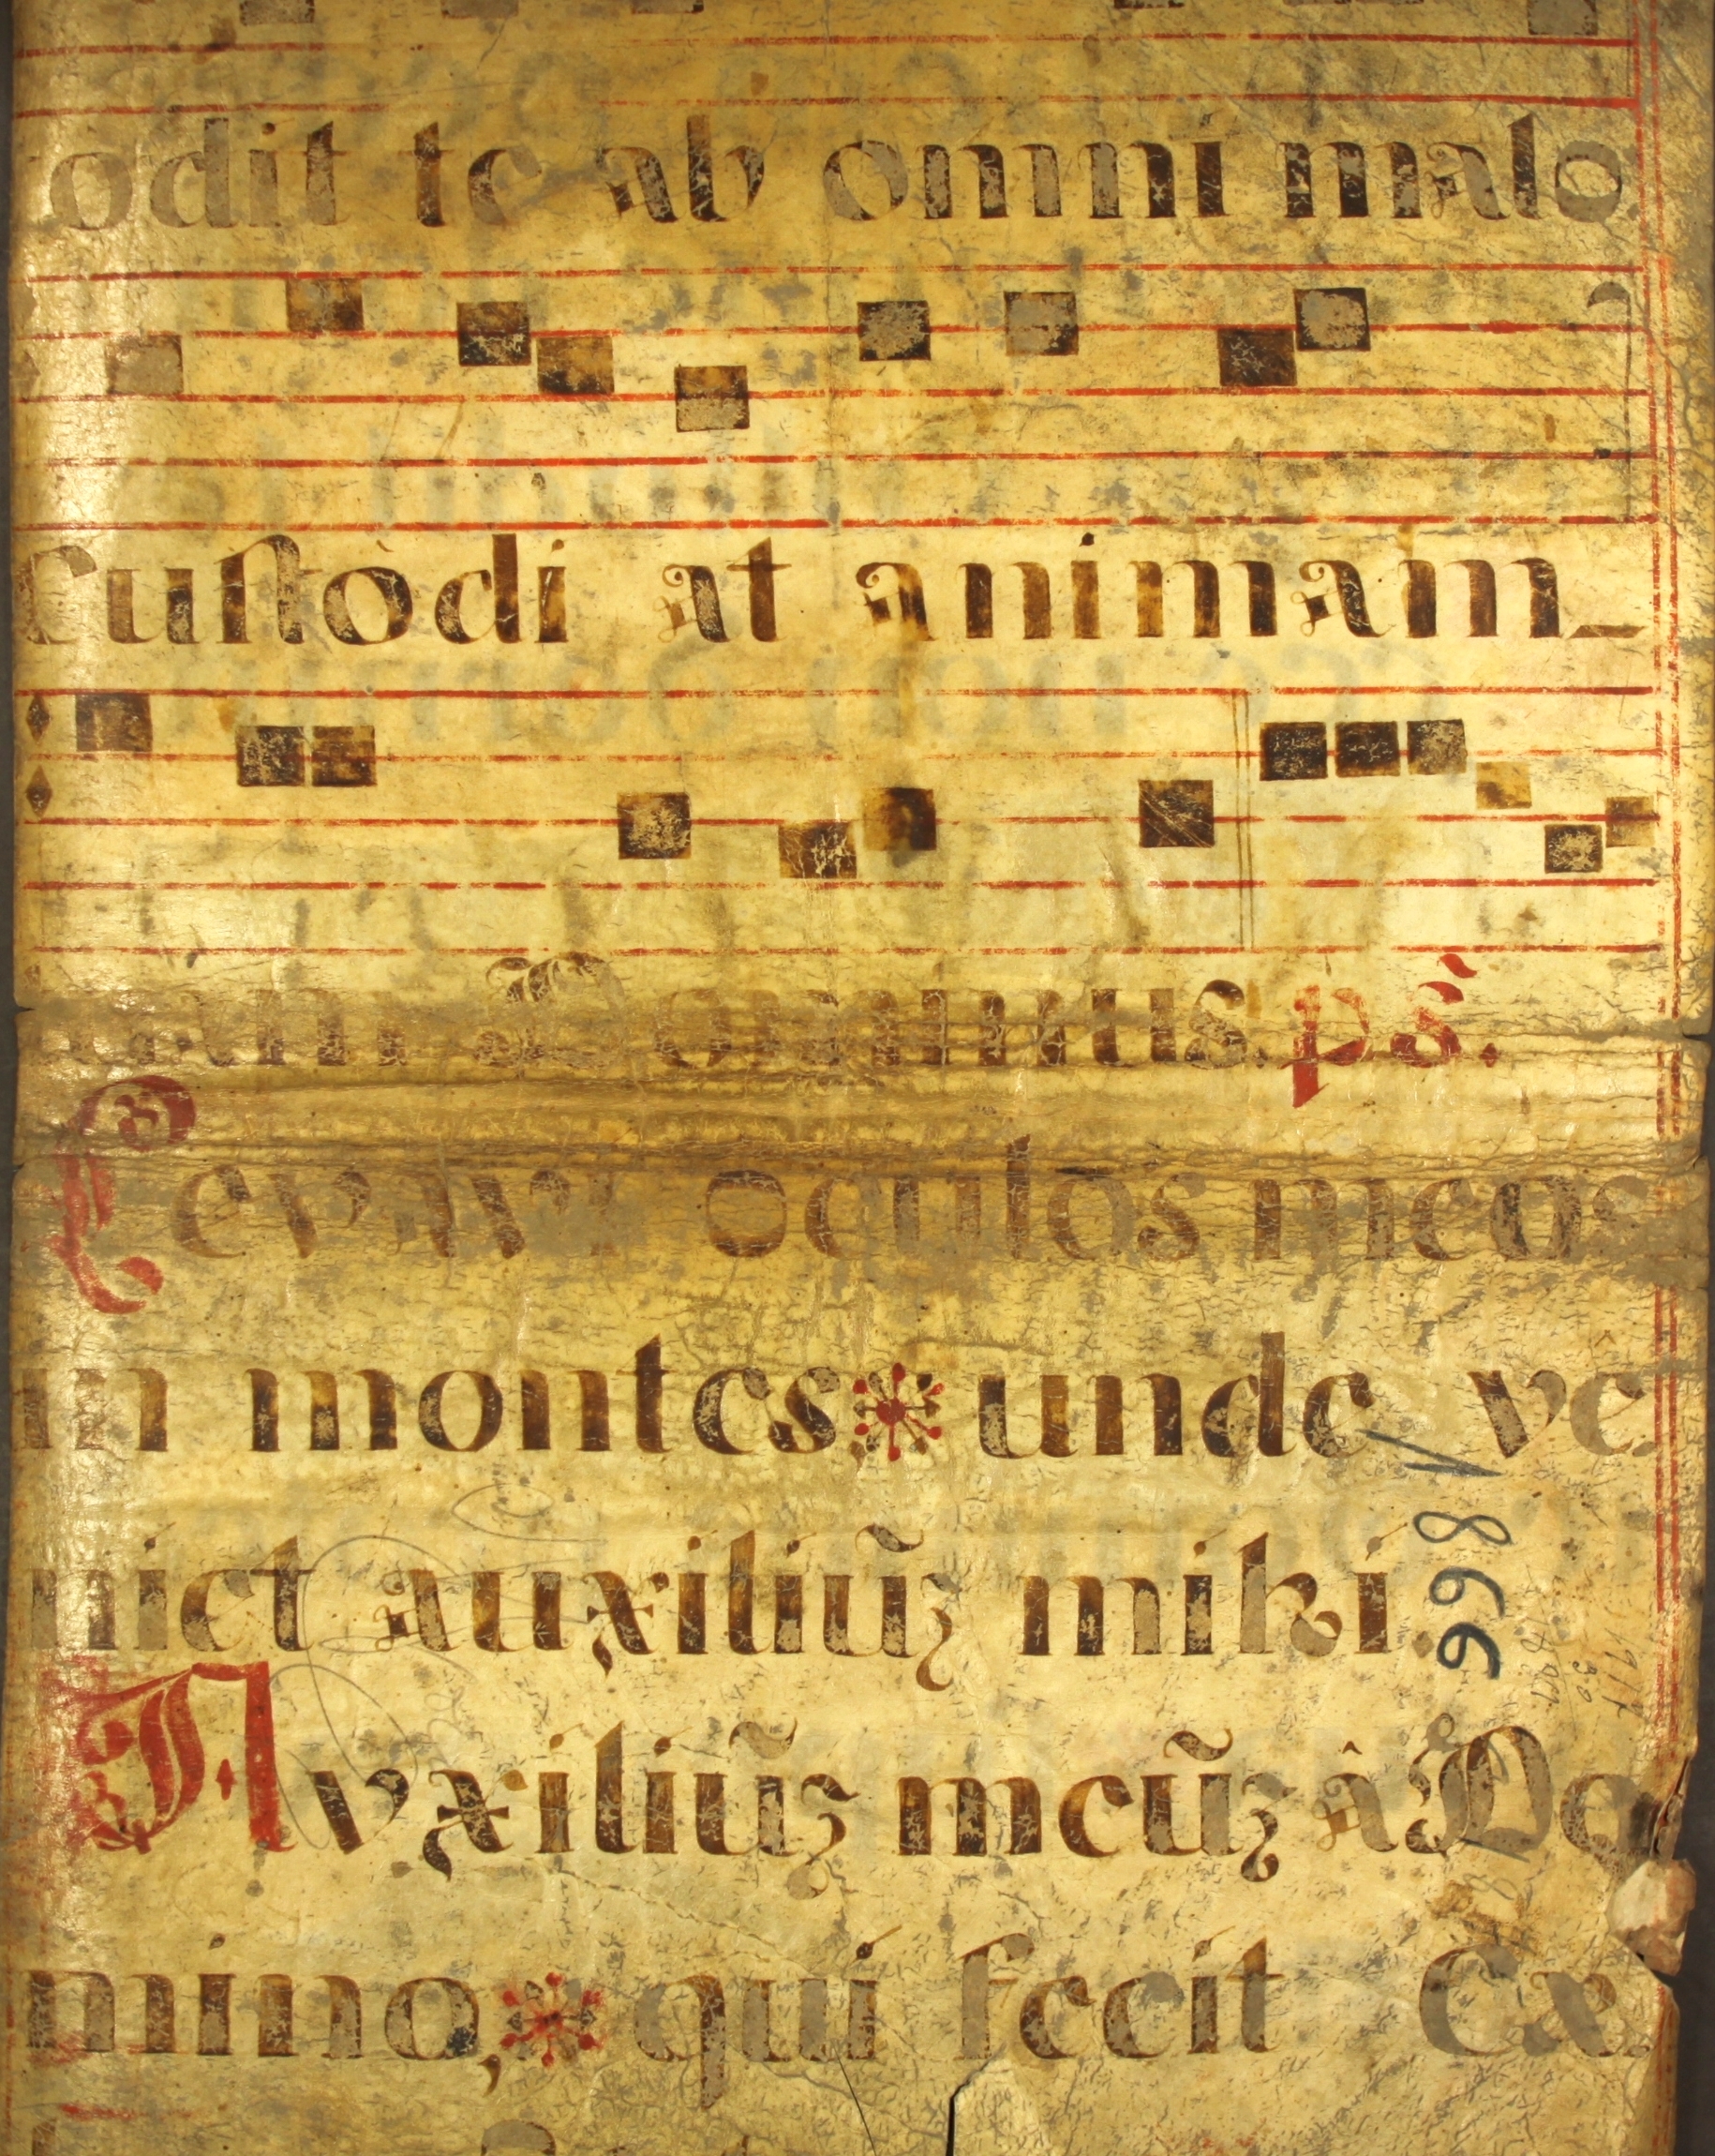 odit te ab omni malo
Custòdi at animam
tuam Dominus. ps.
Levavi oculos meos
in montes * unde ve
niet auxiliuȝ̃ mihi
1866
Auxiliuȝ̃ meuȝ̃ â Do
mino, * qui fecit Cæ